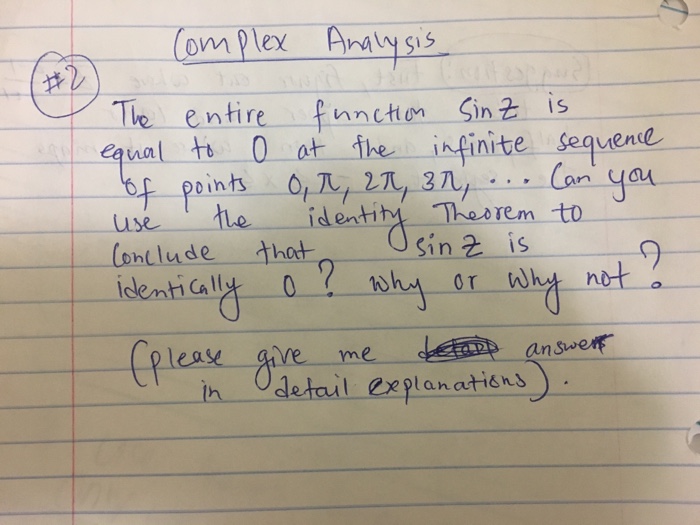 Complex Analysis
#2
The entire function Sin z is
equal to 0 at the infinite sequence
of points 0, π, 2π, 3π, ... Can you
use the identity Theorem to
Conclude that sin z is
identically 0? why or why not?
(please give me answer
in detail explanations).